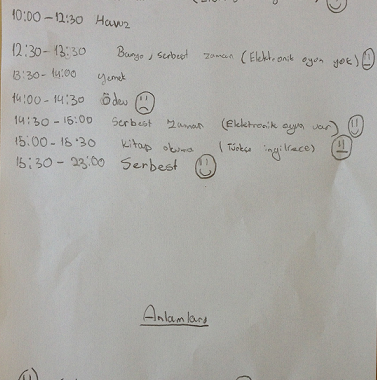 10:00-12:30 Havuz
12:30-13:30 Banyo, serbest zaman (Elektronik oyun yok)
13:30-14:00 yemek
14:00-14:30 Ödev
14:30-15:00 Serbest zaman (Elektronik oyun var)
15:00-15:30 Kitap okuma (Türkçe ingilizce)
15:30-23:00 Serbest
Anlamları